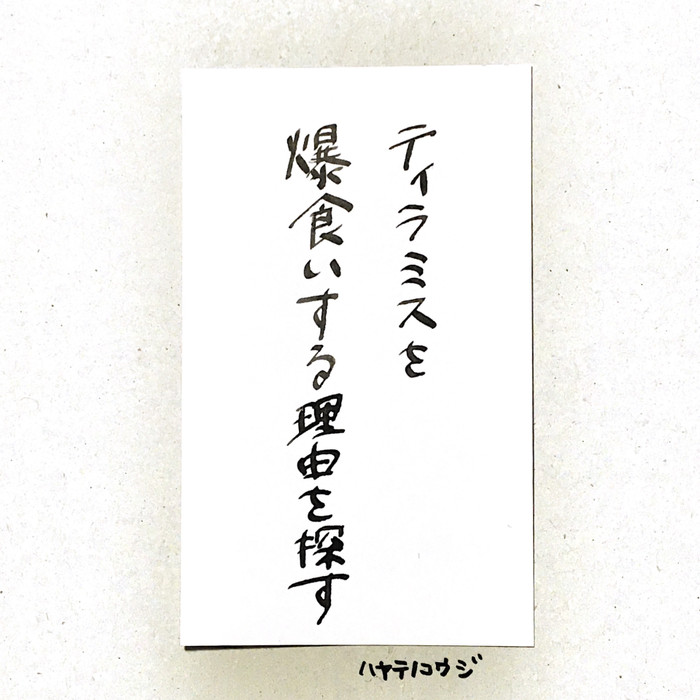 ティラミスを
爆食いする理由を探す
ハヤテノコウジ